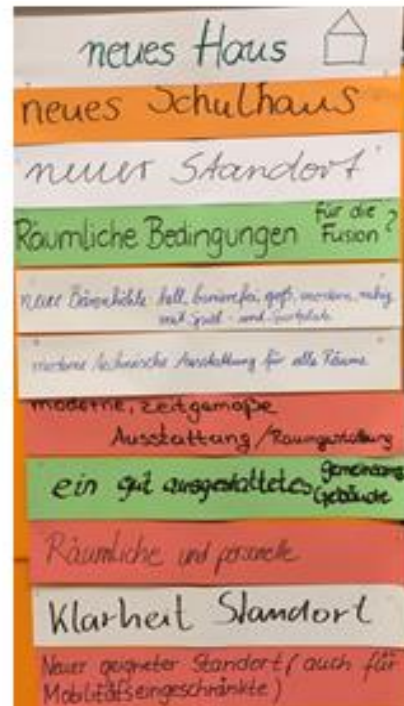 neues Haus
neues Schulhaus
neuer Standort
Räumliche Bedingungen für die Fusion?
neue Bärenhöhle hell, barrierefrei, groß, modern, ruhig
mit Spiel- und Sportplatz
moderne technische Ausstattung für alle Räume
moderne, zeitgemäße
Ausstattung/Raumgestaltung
ein gut ausgestattetes
Gebäude
Räumliche und personelle
Klarheit Standort
Neuer geeigneter Standort (auch für
Mobilitätseingeschränkte)